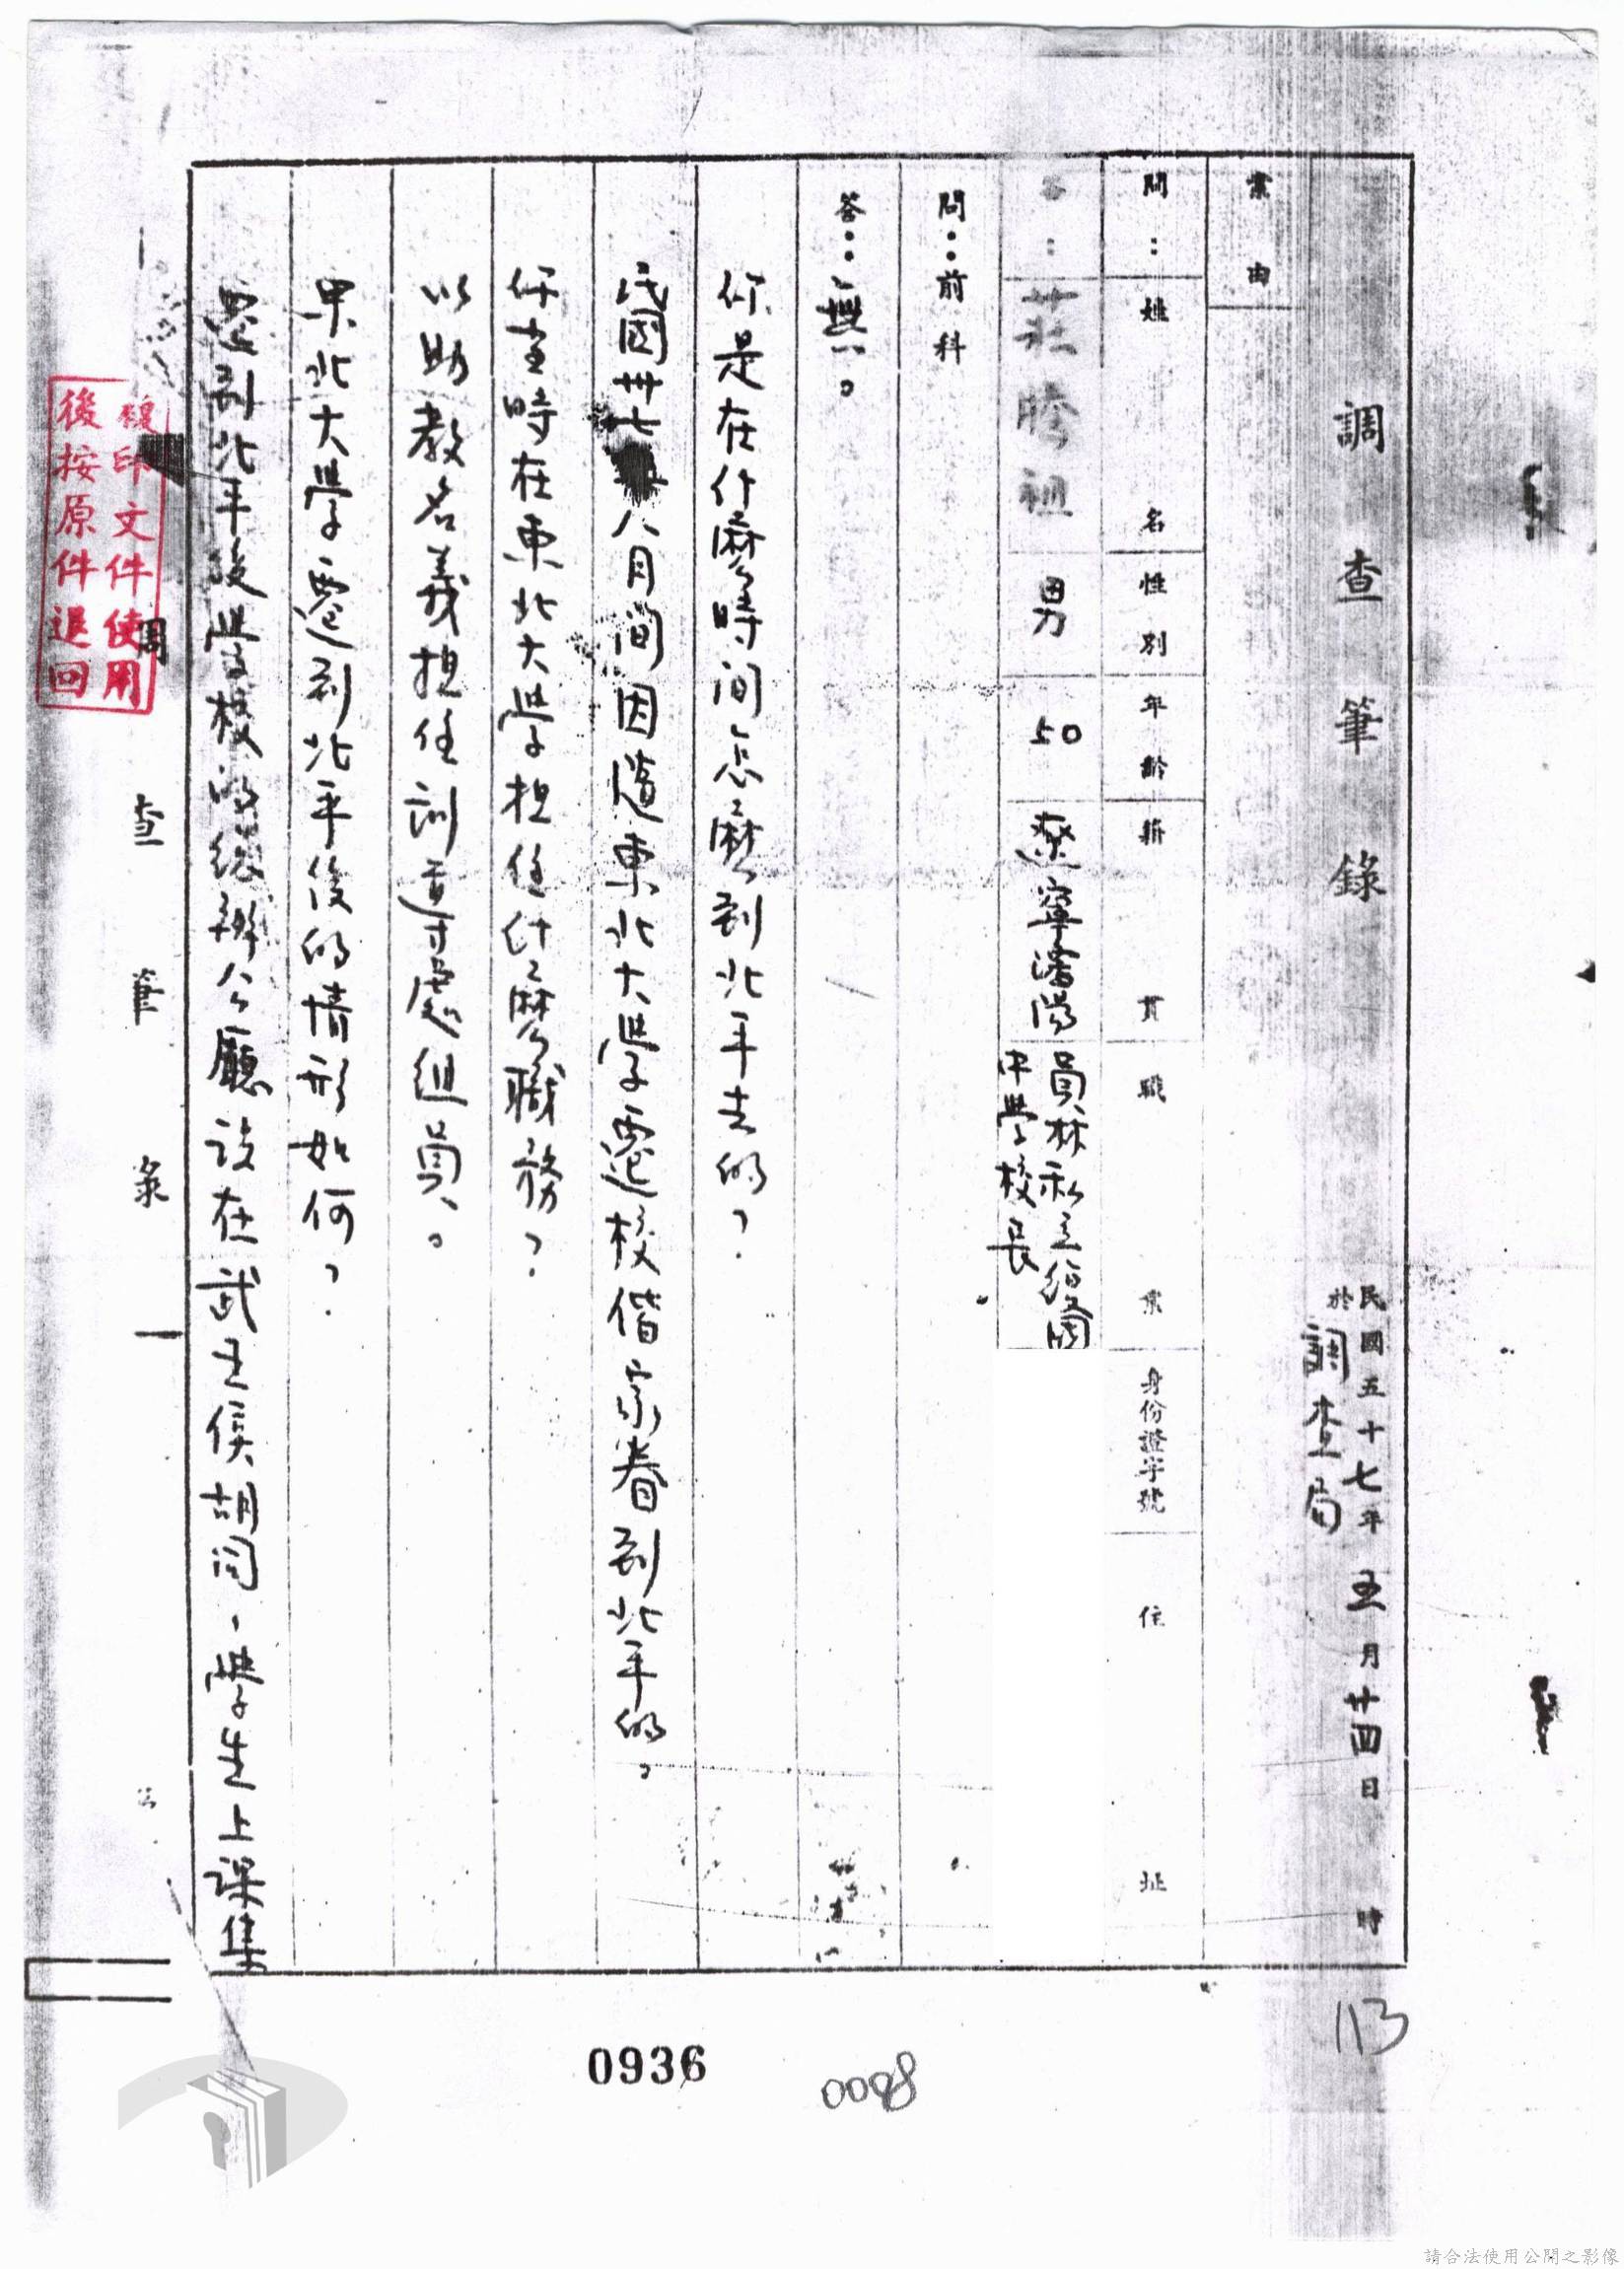 調查筆錄
民國五十七年五月廿四日 時
於調查局
案由
問：姓名 性別 年齡 籍貫 職業 身份證字號 住址
答：莊 祖 男 50 遼寧瀋陽 員林私立 國
中學校長
問：前科
答：無。
你是在什麼時间怎麼到北平去的？
民國卅七 八月间因隨東北大學遷校偕家眷到北平的。
你當時在東北大學担任什麼職務？
以助教名義担任訓導處組員。
東北大學遷到北平後的情形如何？
遷到北平後學校的總辦公廳設在武王侯胡同，學生上課集
調查筆錄 一
複印文件使用
後按原件退回
113
0936
0098
請合法使用公開之影像